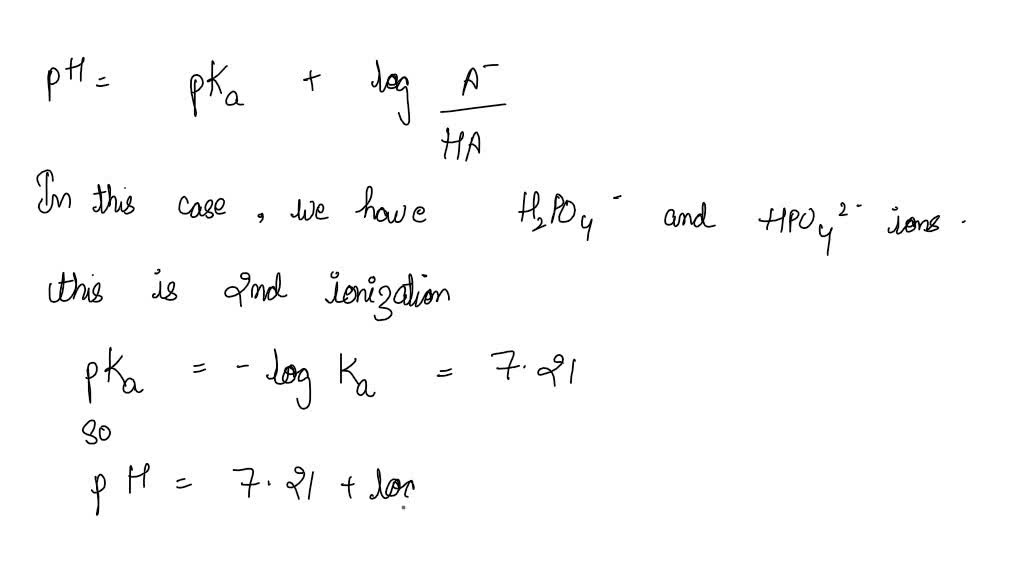 pH = pKa + log A⁻/HA
In this case, we have H₂PO₄⁻ and HPO₄²⁻ ions.
this is 2nd ionization
pKa = - log Ka = 7.21
so
pH = 7.21 + log